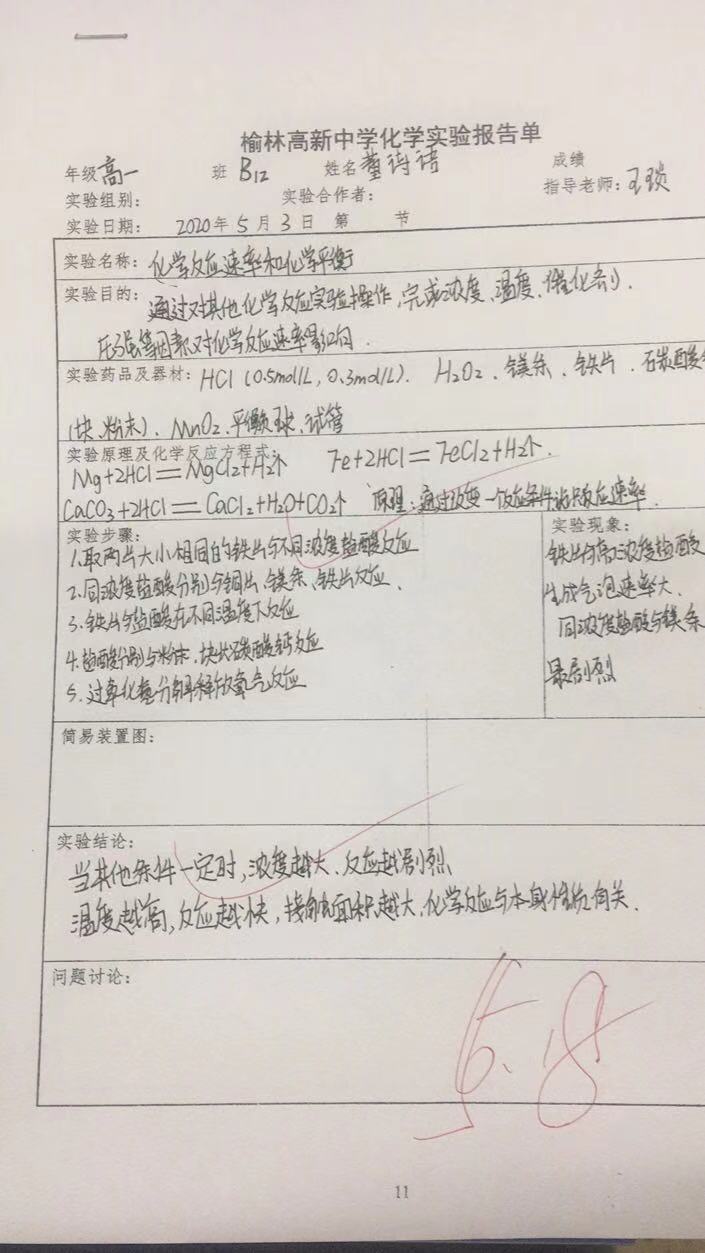 榆林高新中学化学实验报告单
年级高一 班 B12 姓名董诗语 成绩
实验组别: 实验合作者: 指导老师:王琰
实验日期: 2020年5月3日 第 节
实验名称:化学反应速率和化学平衡
实验目的:通过对其他化学反应实验操作,完成浓度、温度、催化剂、
压强等因素对化学反应速率影响.
实验药品及器材:HCl(0.5mol/L,0.3mol/L). H2O2、镁条、铁片、石炭酸
(块、粉末)、MnO2、平衡球、试管
实验原理及化学反应方程式:
Mg+2HCl=MgCl2+H2↑ Fe+2HCl=FeCl2+H2↑.
CaCO3+2HCl=CaCl2+H2O+CO2↑ 原理:通过改变一反应条件 反应速率.
实验步骤:
1.取两片大小相同的铁片与不同浓度盐酸反应
2.同浓度盐酸分别与铜片、镁条、铁片反应、
3.铁片与盐酸在不同温度下反应
4.盐酸分别与粉末、块状碳酸钙反应
5.过氧化氢分解释放氧气反应
实验现象:
铁片与高浓度盐酸
生成气泡速率大.
同浓度盐酸与镁条
最剧烈
简易装置图:
实验结论:
当其他条件一定时,浓度越大、反应越剧烈、
温度越高,反应越快,接触面积越大,化学反应与本身性质有关.
问题讨论:
5.18
11